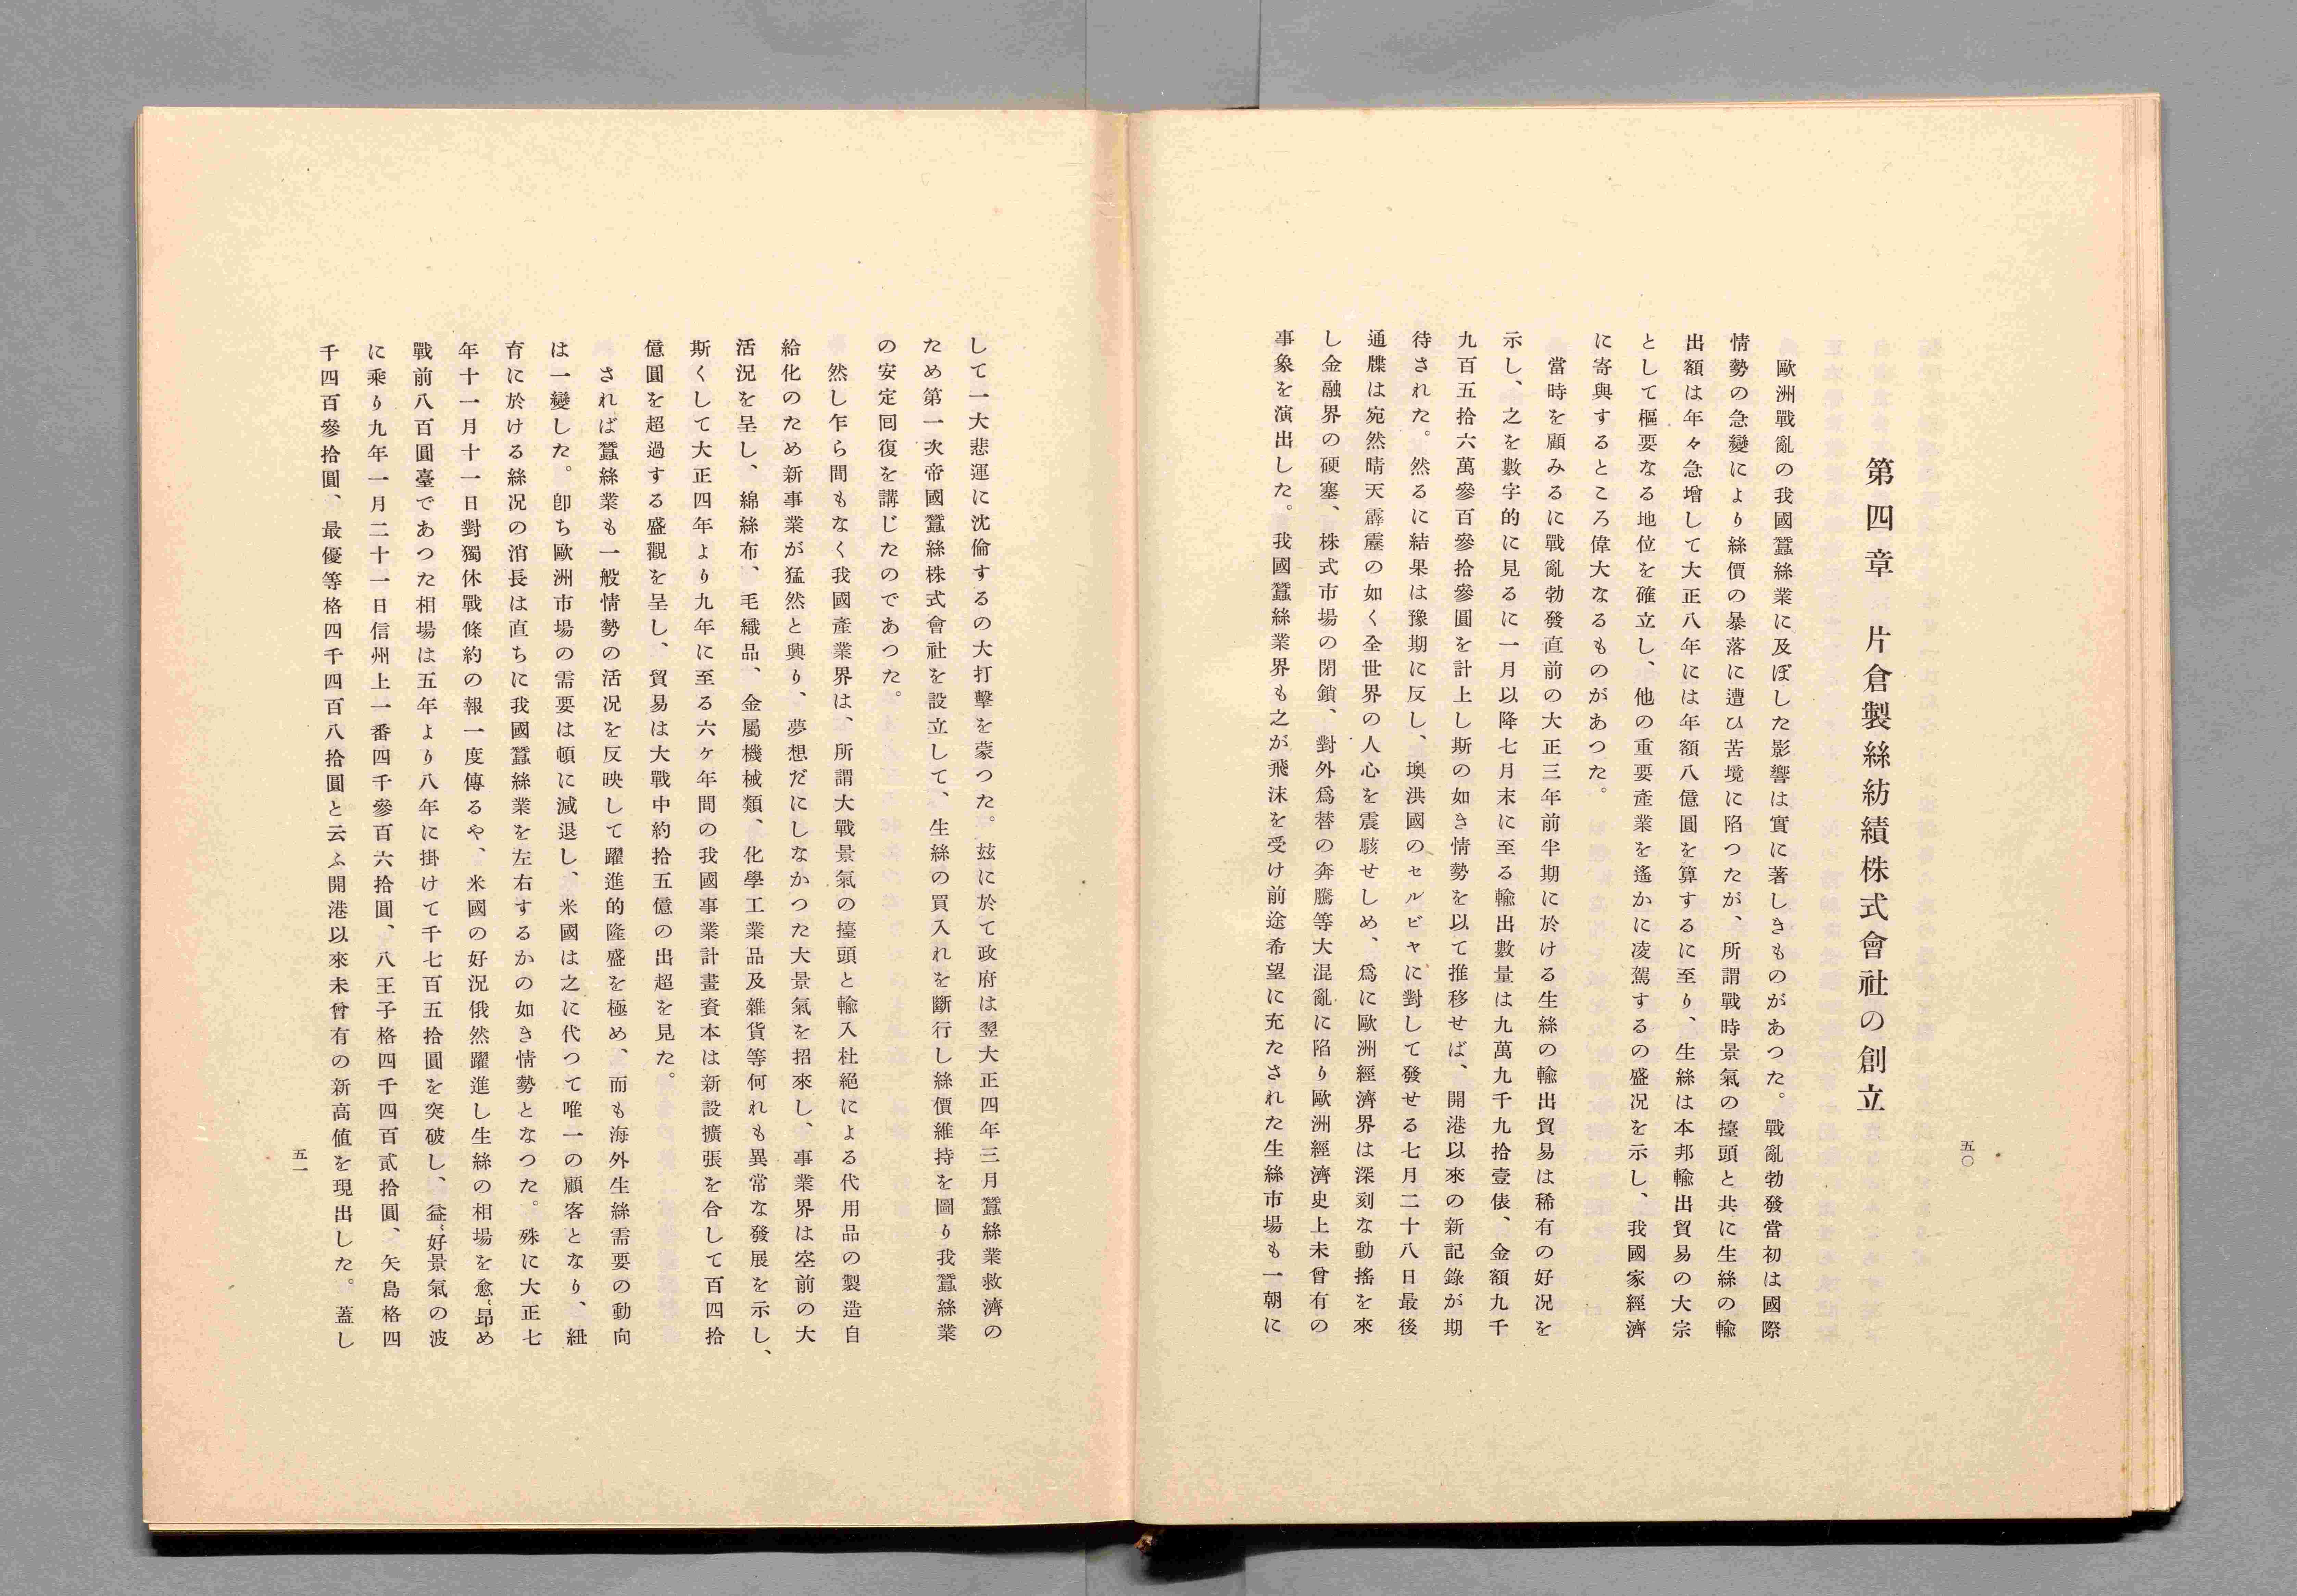 第四章　片倉製絲紡績株式會社の創立
歐洲戰亂の我國蠶絲業に及ぼした影響は實に著しきものがあつた。戰亂勃發當初は國際
情勢の急變により絲價の暴落に遭ひ苦境に陷つたが、所謂戰時景氣の擡頭と共に生絲の輸
出額は年々急增して大正八年には年額八億圓を算するに至り、生絲は本邦輸出貿易の大宗
として樞要なる地位を確立し、他の重要產業を遙かに凌駕するの盛况を示し、我國家經濟
に寄與するところ偉大なるものがあつた。
當時を顧みるに戰亂勃發直前の大正三年前半期に於ける生絲の輸出貿易は稀有の好况を
示し、之を數字的に見るに一月以降七月末に至る輸出數量は九萬九千九拾壹俵、金額九千
九百五拾六萬參百參拾參圓を計上し斯の如き情勢を以て推移せば、開港以來の新記錄が期
待された。然るに結果は豫期に反し、墺洪國のセルビヤに對して發せる七月二十八日最後
通牒は宛然晴天霹靂の如く全世界の人心を震駭せしめ、爲に歐洲經濟界は深刻な動搖を來
し金融界の硬塞、株式市場の閉鎖、對外爲替の奔騰等大混亂に陷り歐洲經濟史上未曾有の
事象を演出した。我國蠶絲業界も之が飛沫を受け前途希望に充たされた生絲市場も一朝に
五〇
して一大悲運に沈倫するの大打擊を蒙つた。玆に於て政府は翌大正四年三月蠶絲業救濟の
ため第一次帝國蠶絲株式會社を設立して、生絲の買入れを斷行し絲價維持を圖り我蠶絲業
の安定回復を講じたのであつた。
然し乍ら間もなく我國產業界は、所謂大戰景氣の擡頭と輸入杜絕による代用品の製造自
給化のため新事業が猛然と興り、夢想だにしなかつた大景氣を招來し、事業界は空前の大
活况を呈し、綿絲布、毛織品、金屬機械類、化學工業品及雜貨等何れも異常な發展を示し、
斯くして大正四年より九年に至る六ケ年間の我國事業計畫資本は新設擴張を合して百四拾
億圓を超過する盛觀を呈し、貿易は大戰中約拾五億の出超を見た。
されば蠶絲業も一般情勢の活况を反映して躍進的隆盛を極め、而も海外生絲需要の動向
は一變した。卽ち歐洲市場の需要は頓に減退し、米國は之に代つて唯一の顧客となり、紐
育に於ける絲况の消長は直ちに我國蠶絲業を左右するかの如き情勢となつた。殊に大正七
年十一月十一日對獨休戰條約の報一度傳るや、米國の好况俄然躍進し生絲の相場を愈〻昻め
戰前八百圓臺であつた相場は五年より八年に掛けて千七百五拾圓を突破し、益〻好景氣の波
に乘り九年一月二十一日信州上一番四千參百六拾圓、八王子格四千四百貳拾圓、矢島格四
千四百參拾圓、最優等格四千四百八拾圓と云ふ開港以來未曾有の新高値を現出した。蓋し
五一